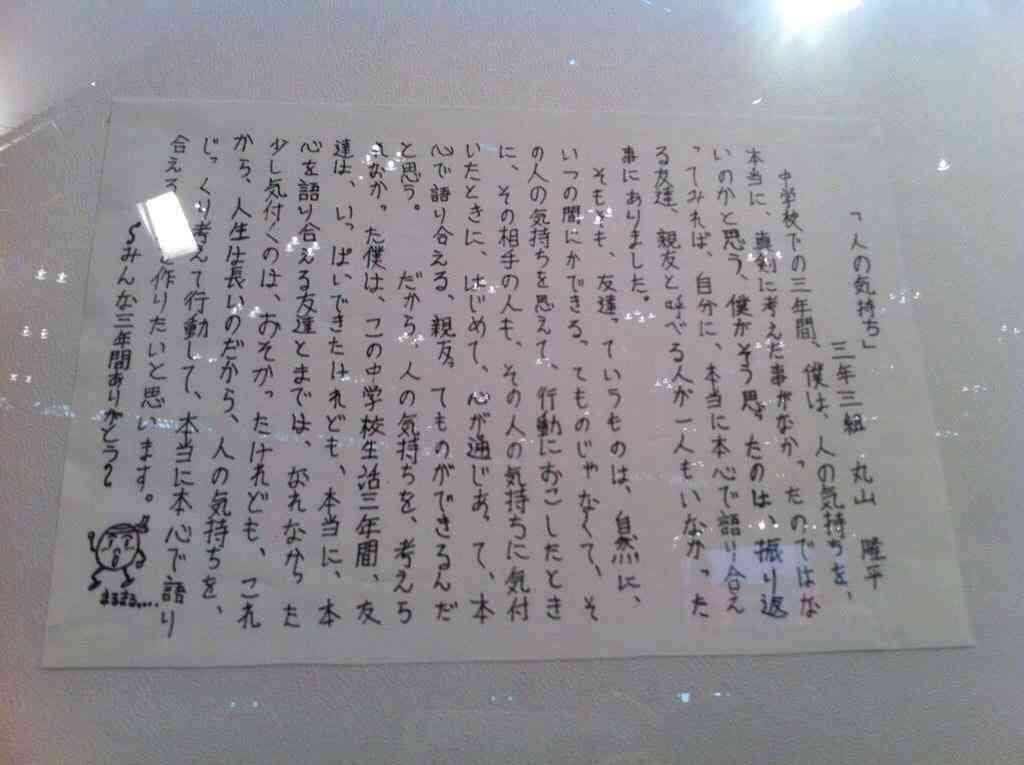 「人の気持ち」
三年三組 丸山 隆平
中学校での三年間、僕は、人の気持ちを、
本当に、真剣に考えた事がなかったのではな
いのかと思う。僕がそう思ったのは、振り返
ってみれば、自分に、本当に本心で語り合え
る友達、親友と呼べる人が一人もいなかった
事にありました。
そもそも、友達っていうものは、自然に、
いつの間にかできる、てものじゃなくて、そ
の人の気持ちを思えて、行動におこしたとき
に、その相手の人も、その人の気持ちに気付
いたときに、はじめて、心が通じあって、本
心で語り合える、親友ってものができるんだ
と思う。 だから、人の気持ちを、考えら
れなかった僕は、この中学校生活三年間、友
達は、いっぱいできたけれども、本当に、本
心を語り合える友達とまでは、なれなかった
少し気付くのは、おそかったけれども、これ
から、人生は長いのだから、人の気持ちを、
じっくり考えて行動して、本当に本心で語り
合える を作りたいと思います。
〜みんな三年間ありがとう〜
まるまる....